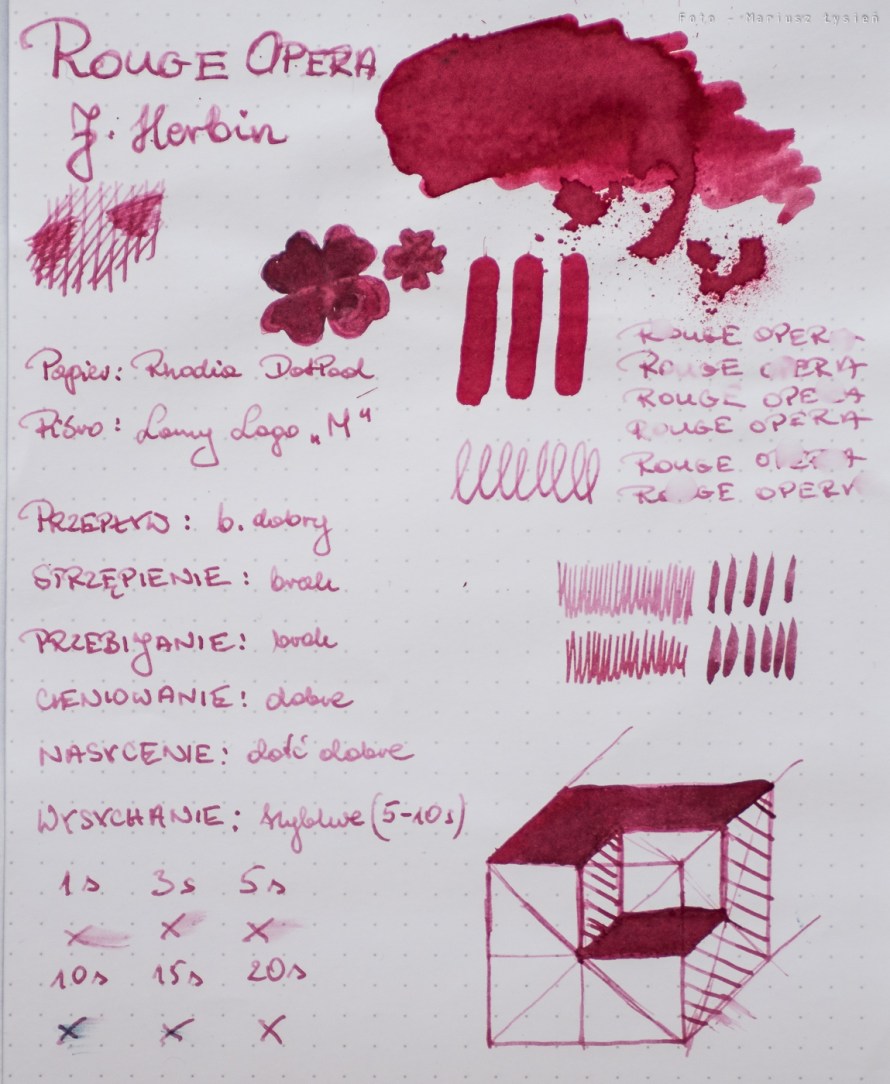 Foto - Mariusz Łysień
ROUGE OPERA
J. Herbin
Papier: Rhodia DotPad
Pióro: Lamy Logo „M"
ROUGE OPERA
ROUGE OPERA
ROUGE OPERA
ROUGE OPERA
ROUGE OPERA
ROUGE OPERA
PRZEPŁYW: b. dobry
STRZĘPIENIE: brak
PRZEBIJANIE: brak
CIENIOWANIE: dobre
NASYCENIE: dość dobre
WYSYCHANIE: szybkie (5-10s)
1s 3s 5s
10s 15s 20s